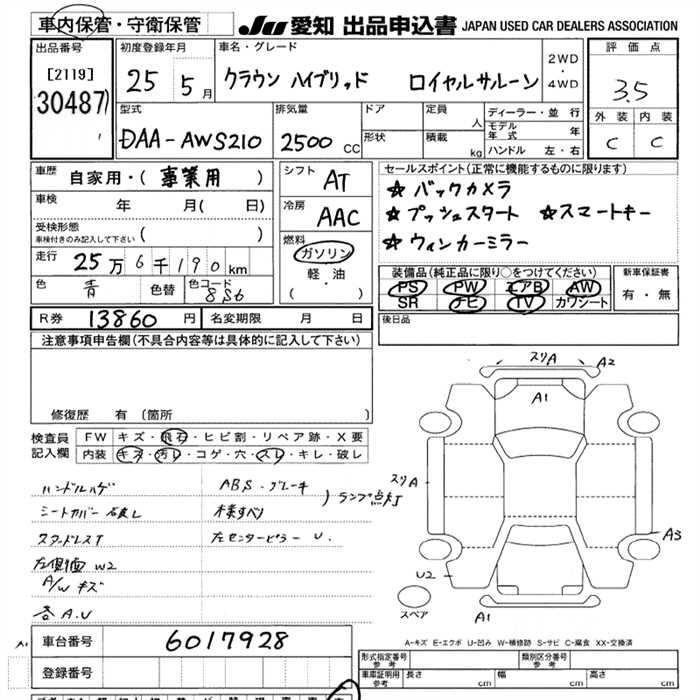 車内保管・守衛保管 JU 愛知 出品申込書 JAPAN USED CAR DEALERS ASSOCIATION
出品番号 初度登録年月 車名・グレード 評価点
[2119] 25 5月 クラウン ハイブリッド ロイヤルサルーン 2WD・4WD 3.5
30487
型式 排気量 ドア 定員 人 ディーラー・並行 外装 内装
DAA-AWS210 2500cc 形状 積載 kg モデル年式 年 C C
ハンドル 左・右
車歴 自家用・(事業用) シフト AT セールスポイント(正常に機能するものに限ります)
車検 年 月( 日) 冷房 AAC ☆バックカメラ
受検形態 車検付きのみ記入して下さい ( ) ☆プッシュスタート ☆スマートキー
燃料 ガソリン ☆ウィンカーミラー
走行 25万6千190km 軽・油 ( )
装備品(純正品に限り○をつけてください) 新車保証書
色 青 色替 色コード 8S6 PS PW エアB AW 有・無
SR ナビ TV カワシート
R券 13860円 名変期限 月 日 後日品
注意事項申告欄(不具合内容等は具体的に記入して下さい)
修復歴 有(箇所 )
検査員記入欄 FW キズ・飛石・ヒビ割・リペア跡・X要
内装 キズ・汚レ・コゲ・穴・スレ・キレ・破レ
ハンドルハゲ ABS・ブレーキ
シートカバー破レ )ランプ点灯
スタッドレスT 左センターピラー U.
左側面 W2
A/W キズ
各 A.U
スリA A2
A1
スリA
A3
U2
A1
スペア
A-キズ E-エクボ U-凹み W-補修跡 S-サビ C-腐食 XX-交換済
A1 車台番号 6017928
登録番号
形式指定番号 参考 類別区分番号 参考
車庫証明用 参考 長さ cm 幅 cm 高さ cm